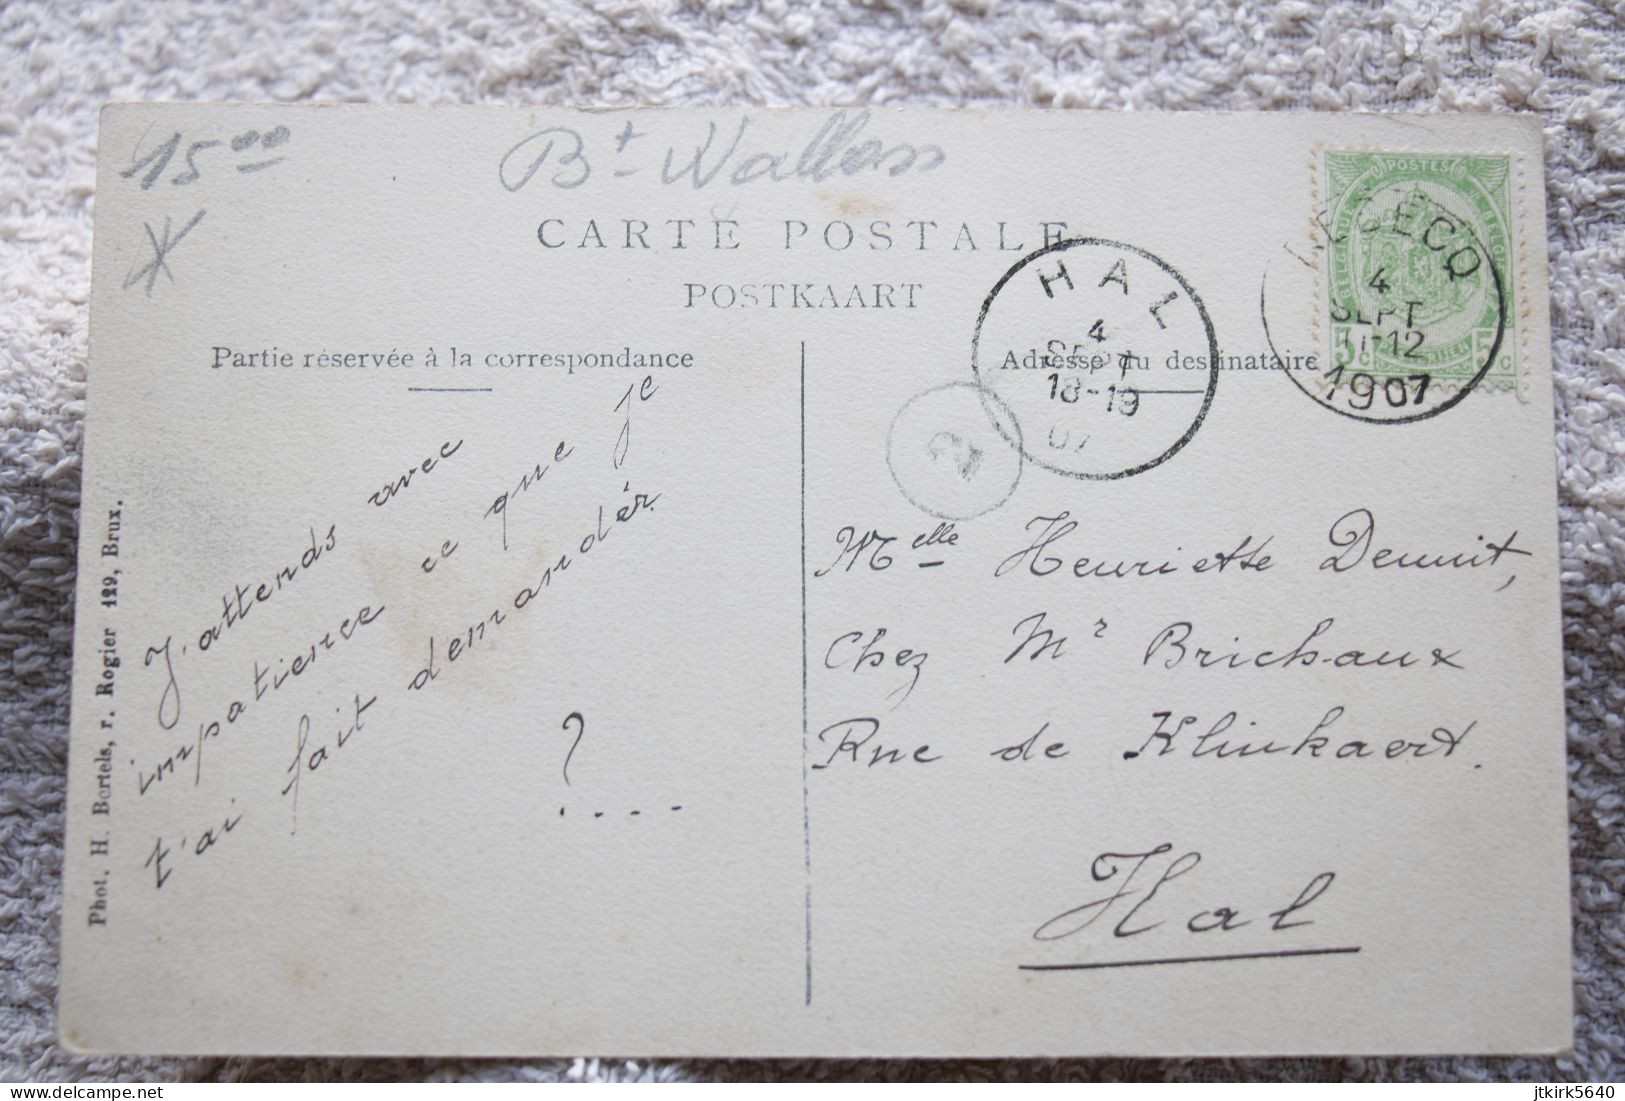 15⁰⁰
Bt Wallon
CARTE POSTALE
POSTKAART
Partie réservée à la correspondance
Adresse du destinataire
HAL
4
SEPT
18-19
07
2
REBECQ
4
SEPT
11-12
1907
POSTES
5c 5c
J'attends avec
impatience ce que je
t'ai fait demandér
?....
Melle Henriette
Chez Mr Brichaux
Rue de Klinkaert.
Hal
Phot. H. Bertels, r. Rogier 129, Brux.
www.delcampe.net
jtkirk5640